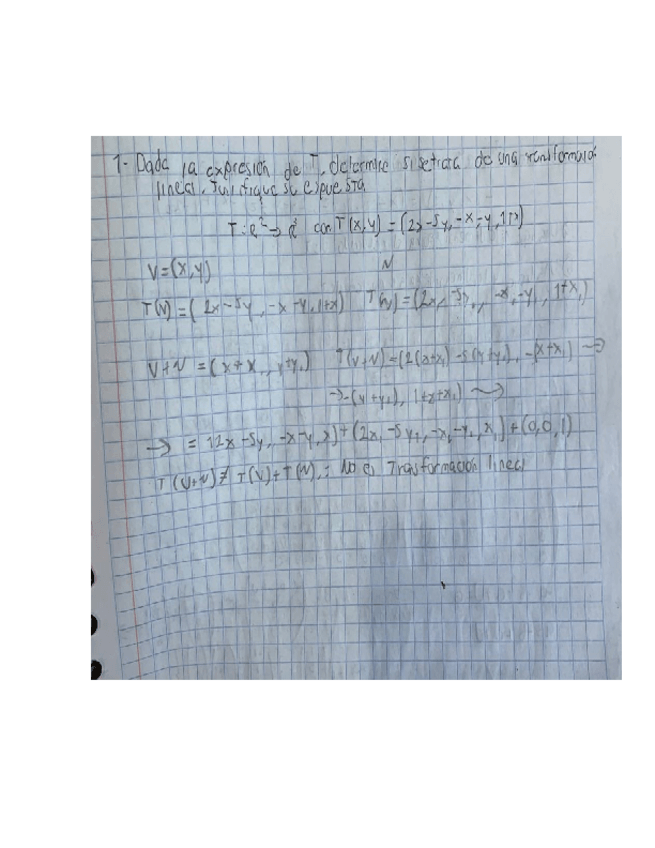 1- Dada la expresión de T, determine si se trata de una transformación
lineal. Justifique su respuesta
T: R² → R³ con T(x,y) = (2x-5y, -x-y, 1+x)
V=(x,y)
T(V) = (2x-5y, -x-y, 1+x) T(N) = (2x₁-5y₁, -x₁-y₁, 1+x₁)
V+N = (x+x₁, y+y₁) T(V+N) = (2(x+x₁) -5(y+y₁), -(x+x₁) →
→ -(y+y₁), 1+x+x₁) →
→ = (2x-5y, -x-y, x) + (2x₁-5y₁, -x₁-y₁, x₁) + (0,0,1)
T(V+N) ≠ T(V)+T(N), ∴ No es Trasformación lineal